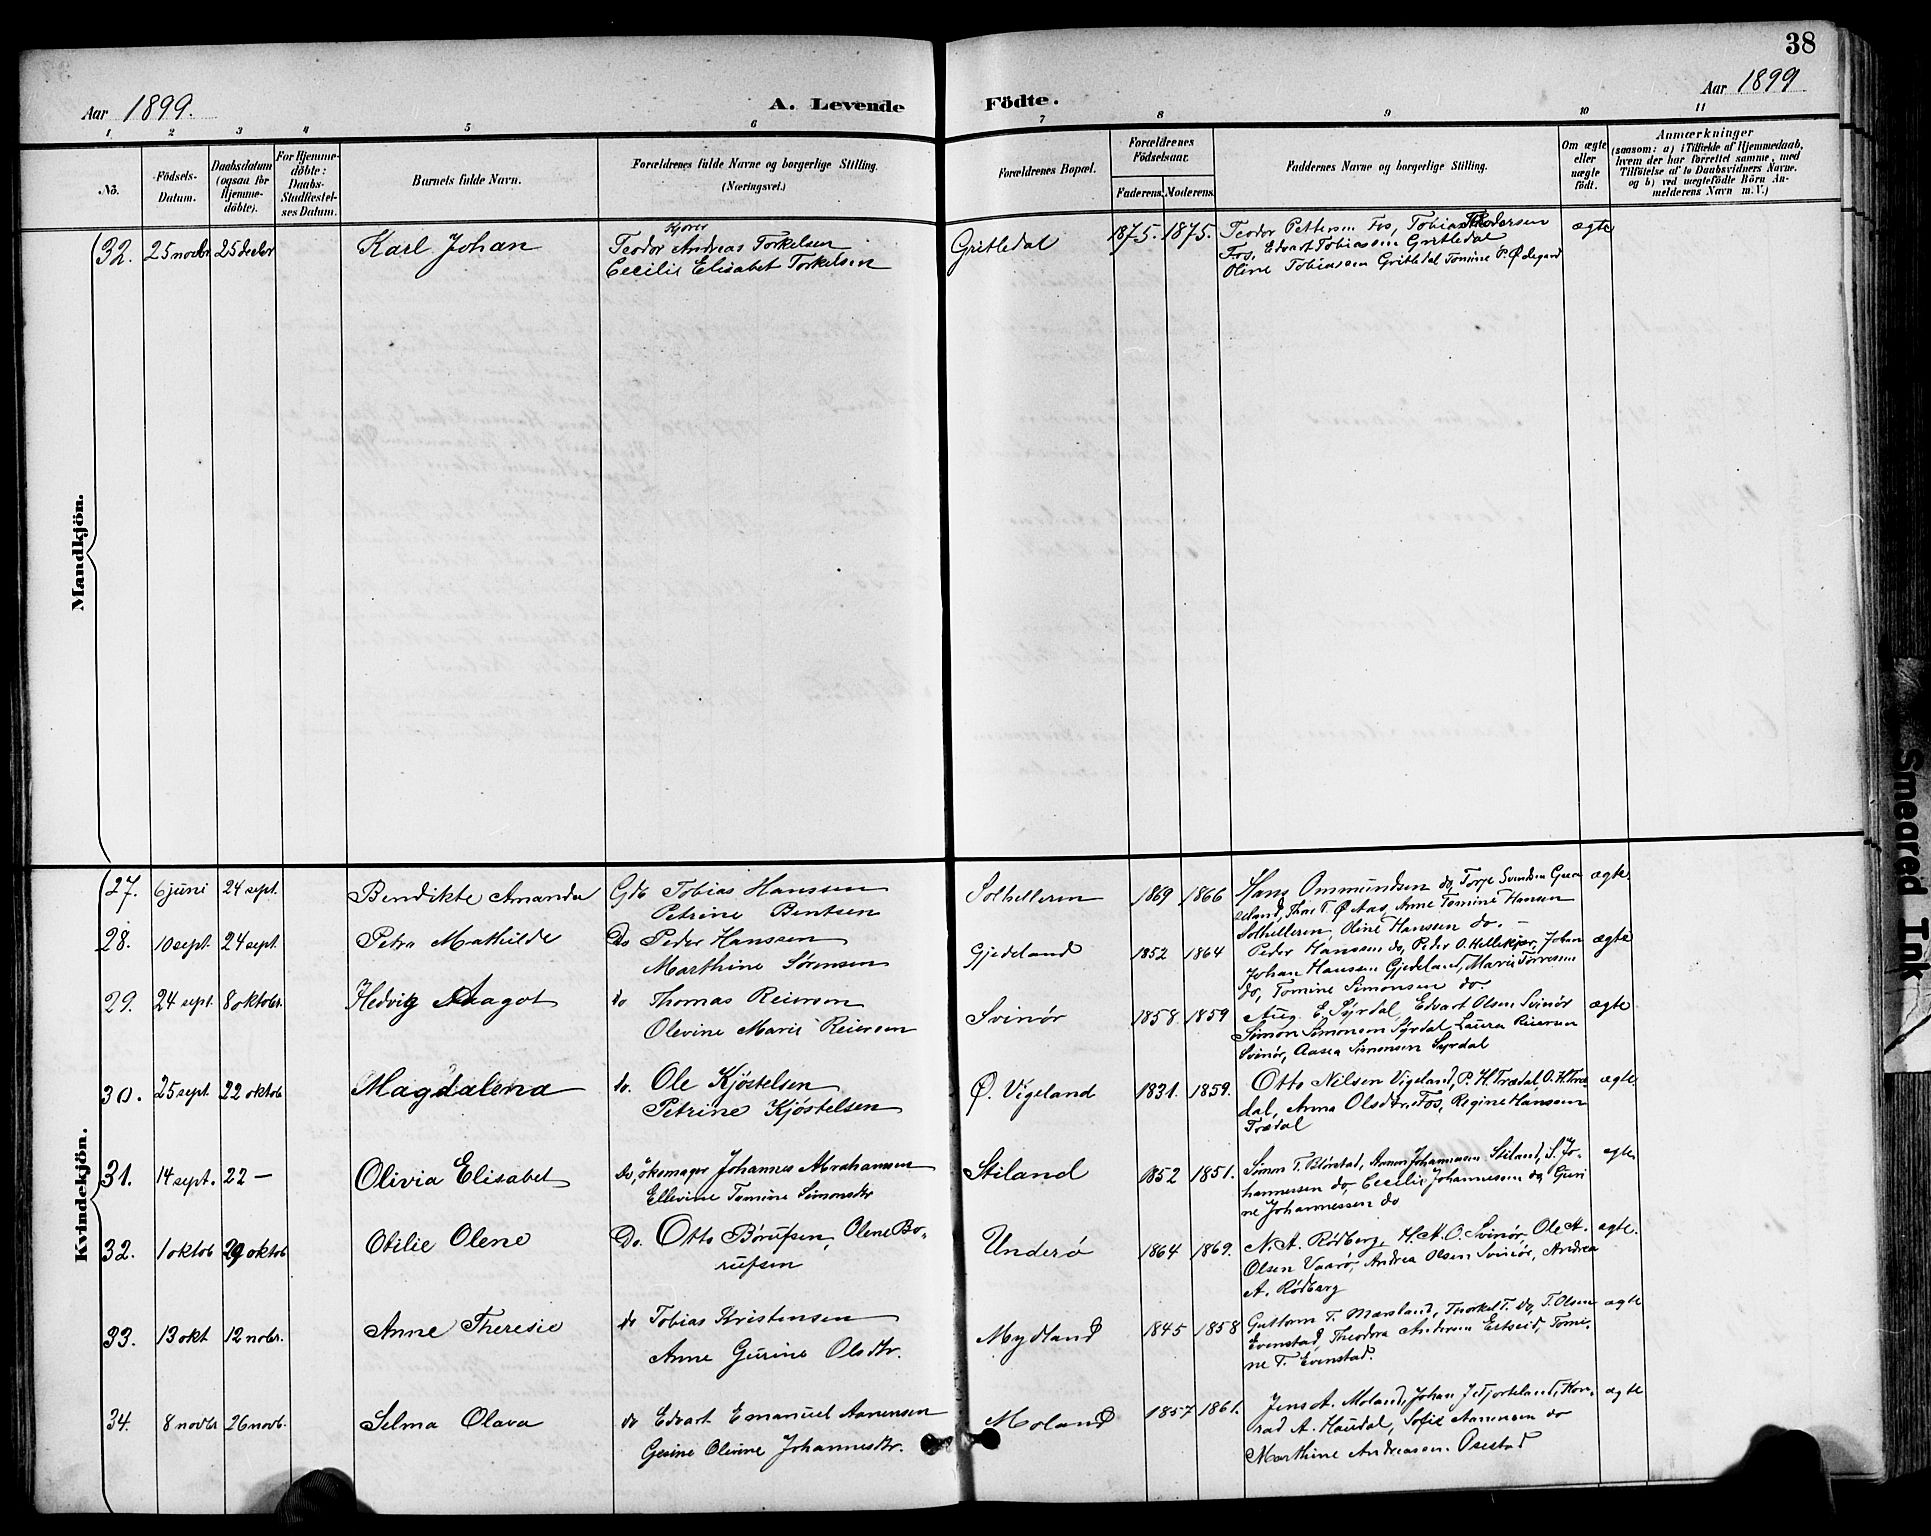 38
Aar 1899.
A. Levende Födte.
Aar 1899
1 2 3 4 5 6 7 8 9 10 11
No.
Födsels-Datum.
Daabsdatum (ogsaa for Hjemme-döbte).
For Hjemme-döbte: Daabs-Stadfæstel-ses Datum.
Barnets fulde Navn.
Forældrenes fulde Navne og borgerlige Stilling.
(Næringsvei.)
Forældrenes Bopæl.
Forældrenes Födselsaar.
Faderens. Moderens.
Faddernes Navne og borgerlige Stilling.
Om ægte eller uægte födt.
Anmærkninger
(saasom: a) i Tilfælde af Hjemmedaab,
hvem der har forrettet samme, med
Tilföielse af to Daabsvidners Navne,
og b) ved uægtefödte Börn An-
melderens Navn m. V.)
Mandkjön.
32. 25 novbr 25 decbr Karl Johan
Teodor Andreas Torkelsen
Cecilie Elisabet Torkelsen
Gritledal 1875. 1875.
Teodor Pettersen Fos, Tobias Pedersen
Fos, Edvart Tobiassen Gritledal
Oline Tobiassen Gritledal Tomine P. Ødegard
ægte
Kvindekjön.
27. 6 juni 24 sept. Bendikte Amanda
Gdb Tobias Hanssen
Petrine Bentsen
Solhelleren 1869 1866
Hans Ommundsen do, Torje Svendsen
Aas, Anne Tomine Hansen
Solhelleren, Oline Hanssen do.
ægte.
28. 10 sept. 24 sept. Petra Mathilde
Do Peder Hanssen
Marthine Sørensen
Gjedeland 1852 1864
Peder Hanssen do, Peder O. Hellekjær, Johan
Johan Hanssen Gjedeland, Marie Torresen
do, Tomine Simonsen do
ægte
29. 24 sept. 8 oktobr. Hedvig Aagot
do Thomas Reiersen
Olevine Marie Reiersen
Svinør 1858. 1859
Aug. E. Syrdal, Edvart Olsen Svinør
Simon Simonsen Syrdal, Laura Reiersen
Svinør, Aasea Simonsen Syrdal
ægte
30. 25 sept. 22 oktob Magdalena
do. Ole Kjøstelsen
Petrine Kjøstelsen
Ø. Vigeland 1831. 1859.
Otto Nilsen Vigeland, P. H. Trædal, O. H. Træ
dal, Anna Olsdtr. Fos, Regine Hanssen
Trædal
ægte
31. 14 sept. 22 — Olivia Elisabet
Do, öksmager Johannes Abrahamsen
Ellevine Tomine Simonsdtr
Stiland 1852 1851.
Simon T. Blørstad, Johannessen Stiland, S. Jo-
hannessen do, Cecilie Johannessen do, Guri
ne Johannessen do
ægte
32. 1 oktob 29 oktob Otilie Olene
Do. Otto Børufsen, Olene Bø-
rufsen
Underø 1864 1869.
N. A. Rødberg, H. A. O. Svinør, Ole A.
Olsen Vaarø, Andrea Olsen Svinør, Andrea
A. Rødberg
ægte.
33. 13 okt 12 nobr. Anne Theresie
do Tobias Kristensen
Anne Gurine Olsdtr.
Mydland 1845 1858
Guttorm T. Møsland, Thorkel T. do, T. Olsen
Evenstad, Theodora Andersen Estseid, Tomi-
ne T. Evenstad.
ægte
34. 8 novbr 26 novb. Selma Olava
do Edvart Emanuel Aanensen
Gesine Olivine Johannesdtr.
Moland 1857 1861.
Jens A. Moland, Johan J. Hjorteland, Kon-
rad A. Haudal, Sofie Aanensen do
Marthine Andreassen Osestad
ægte
Smeared Ink